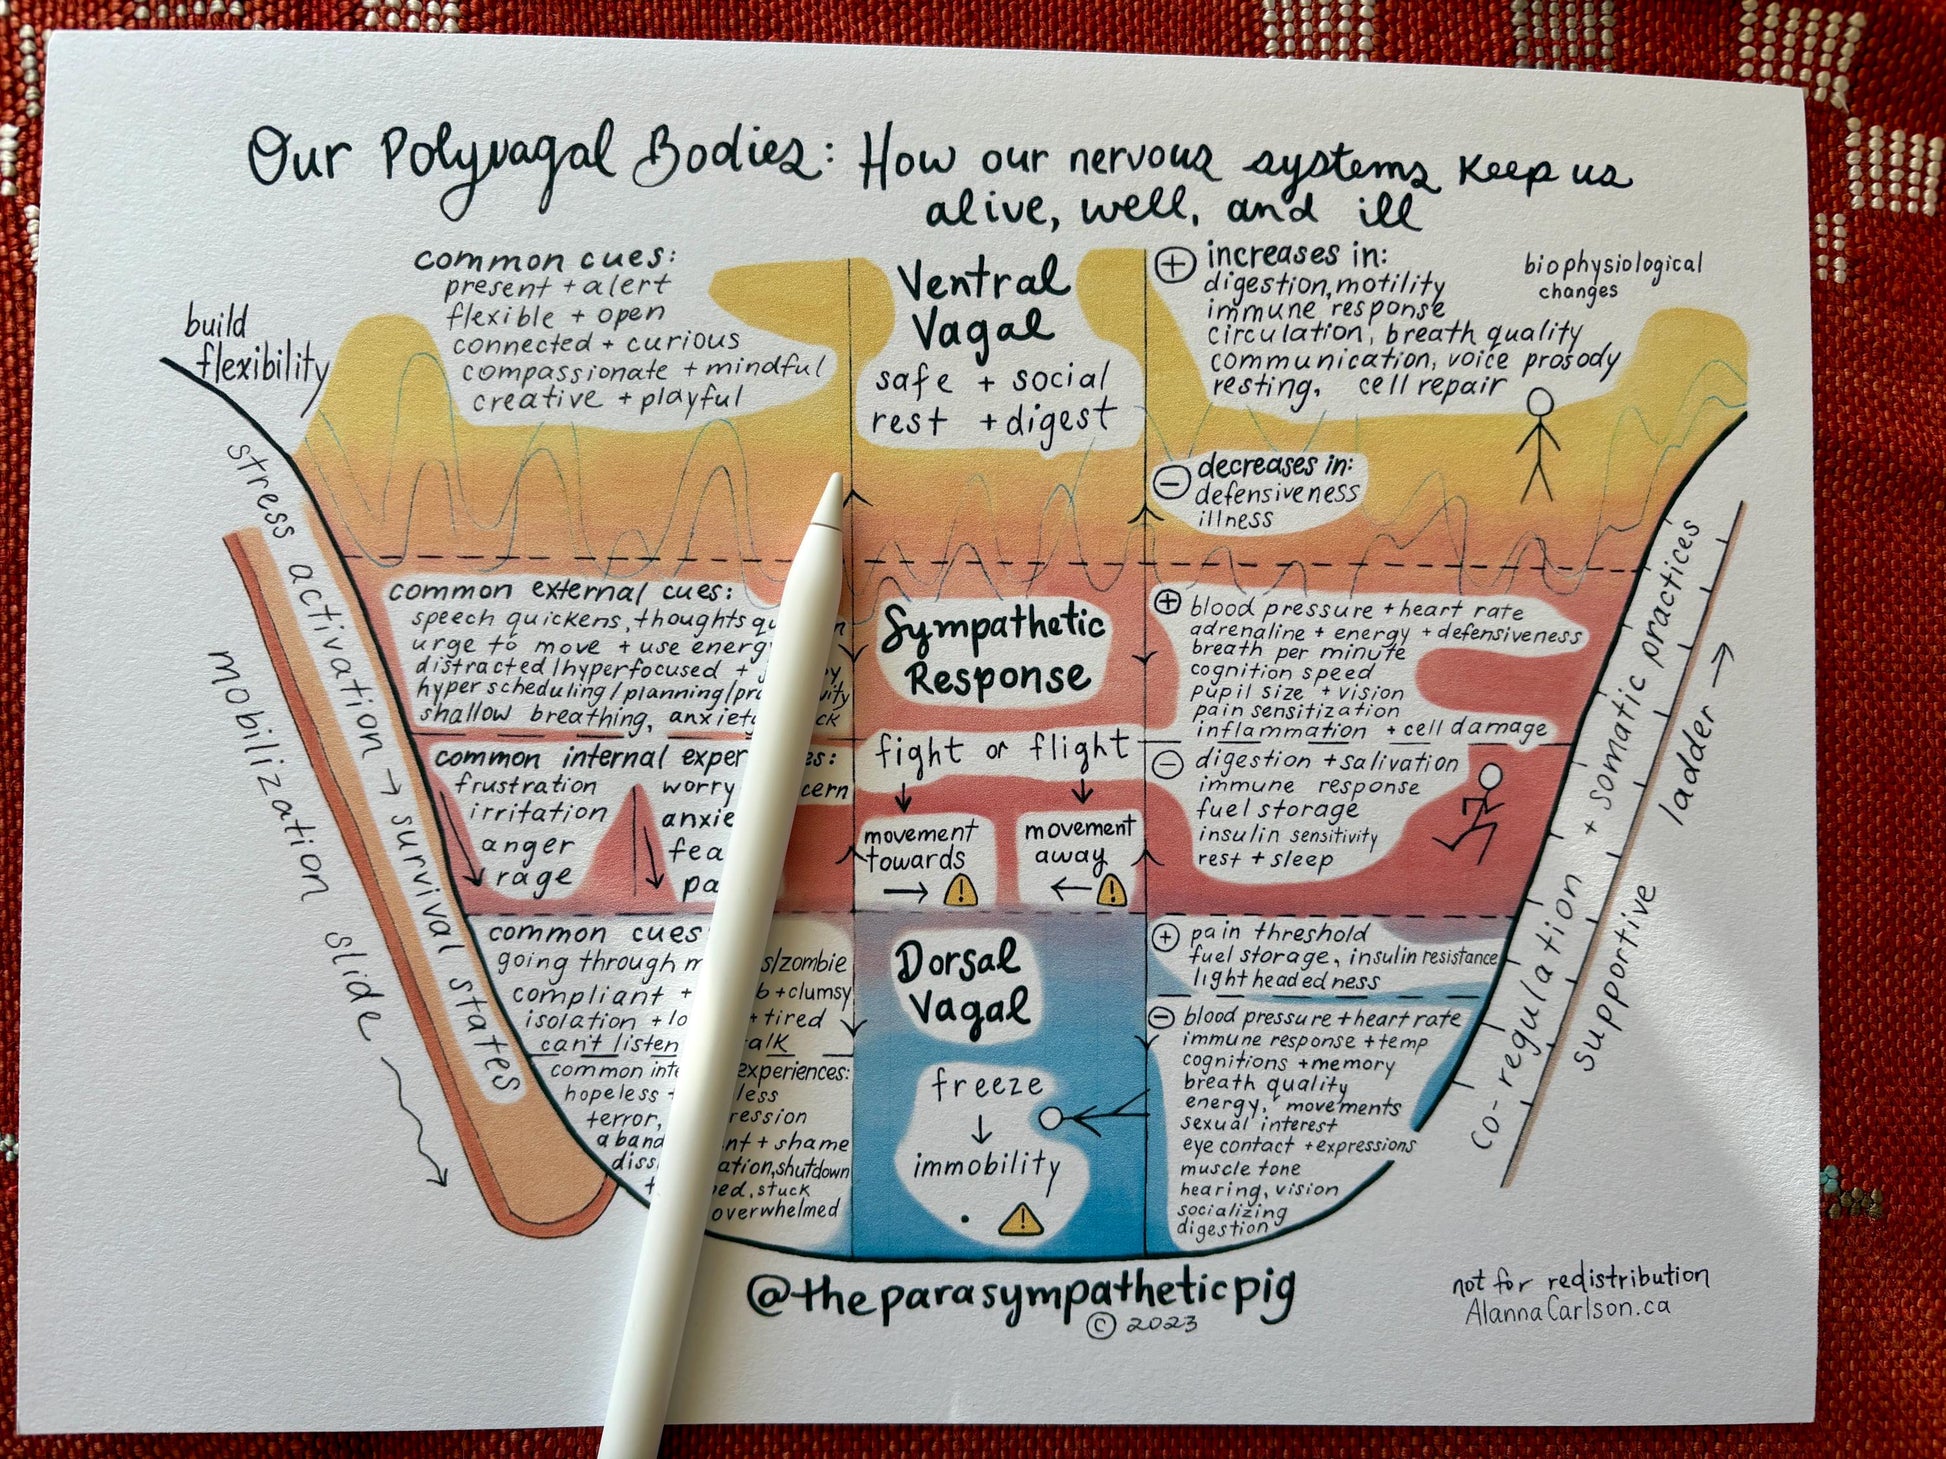 Our Polyvagal Bodies: How our nervous systems keep us
alive, well, and ill
common cues:
present + alert
flexible + open
connected + curious
compassionate + mindful
creative + playful
Ventral
Vagal
safe + social
rest + digest
+ increases in:
digestion, motility
immune response
circulation, breath quality
communication, voice prosody
resting, cell repair
biophysiological
changes
- decreases in:
defensiveness
illness
build
flexibility
stress activation → survival states
mobilization slide
common external cues:
speech quickens, thoughts
urge to move + use
distracted/hyperfocused +
hyper scheduling/planning/
shallow breathing,
common internal
frustration
irritation
anger
rage
worry
Sympathetic
Response
fight or flight
movement
towards
→ !
movement
away
← !
+ blood pressure + heart rate
adrenaline + energy + defensiveness
breath per minute
cognition speed
pupil size + vision
pain sensitization
inflammation + cell damage
- digestion + salivation
immune response
fuel storage
insulin sensitivity
rest + sleep
common cues
going through
/zombie
compliant +
+ clumsy
isolation +
+ tired
can't listen
common
experiences:
hopeless
terror,
+ shame
shutdown
stuck
overwhelmed
Dorsal
Vagal
freeze
↓
immobility
!
+ pain threshold
fuel storage, insulin resistance
lightheadedness
- blood pressure + heart rate
immune response + temp
cognitions + memory
breath quality
energy, movements
sexual interest
eye contact + expressions
muscle tone
hearing, vision
socializing
digestion
co-regulation + somatic practices
supportive ladder →
@theparasympatheticpig
© 2023
not for redistribution
AlannaCarlson.ca